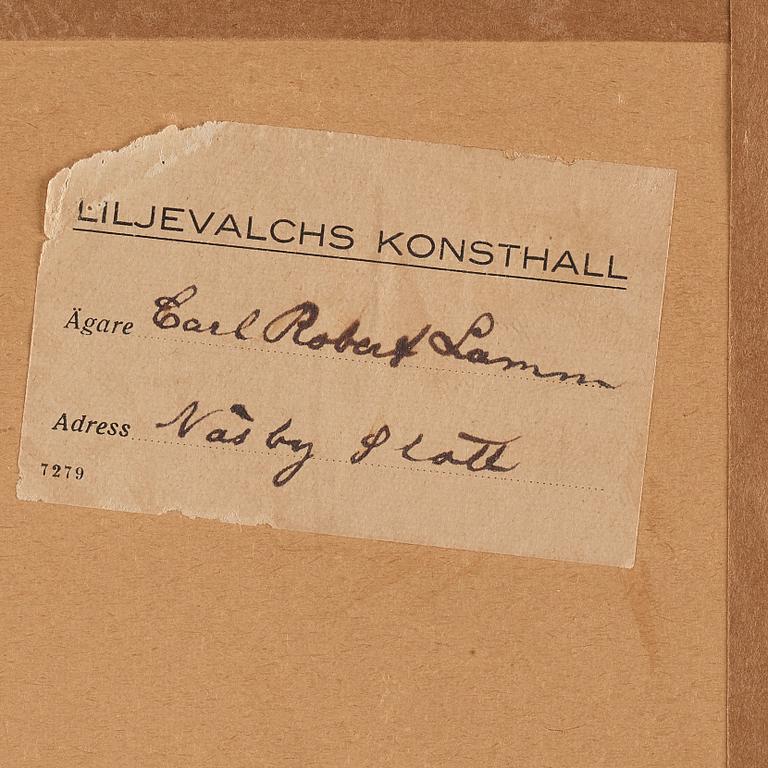 LILJEVALCHS KONSTHALL
Ägare Carl Robert Lamm
Adress Näsby Slott
7279